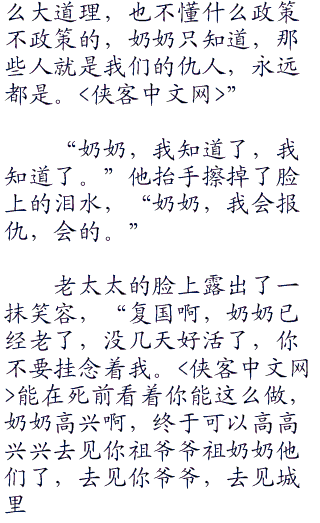 么大道理，也不懂什么政策
不政策的，奶奶只知道，那
些人就是我们的仇人，永远
都是。<侠客中文网>”
“奶奶，我知道了，我
知道了。”他抬手擦掉了脸
上的泪水，“奶奶，我会报
仇，会的。”
老太太的脸上露出了一
抹笑容，“复国啊，奶奶已
经老了，没几天好活了，你
不要挂念着我。<侠客中文网
>能在死前看着你能这么做，
奶奶高兴啊，终于可以高高
兴兴去见你祖爷爷祖奶奶他
们了，去见你爷爷，去见城
里